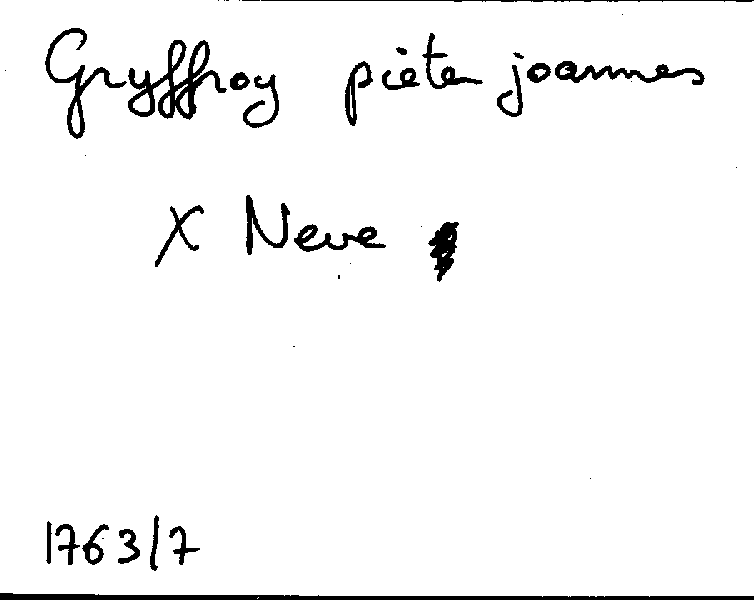 Gryffroy pieter joannes
X Neve
1763/7